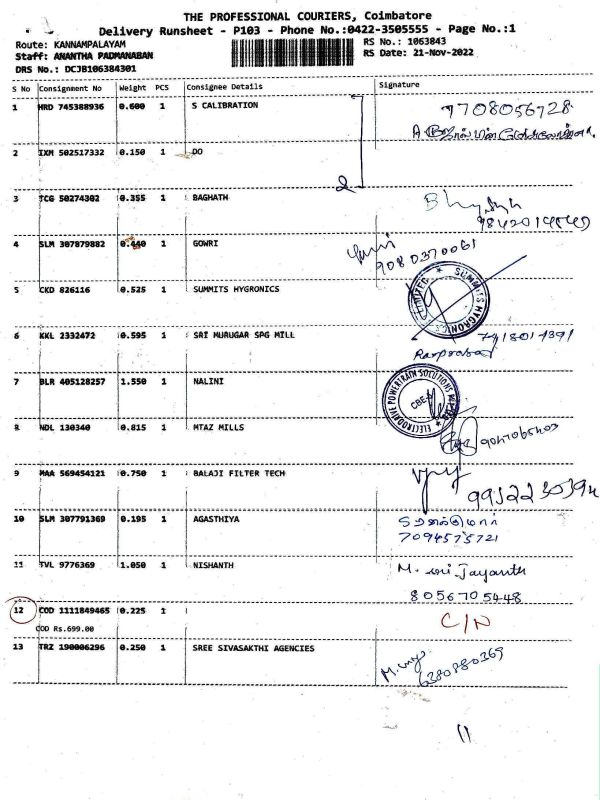 THE PROFESSIONAL COURIERS, Coimbatore
Delivery Runsheet - P103 - Phone No.:0422-3505555 - Page No.:1
Route: KANNAMPALAYAM
RS No.: 1063843
Staff: ANANTHA PADMANABAN
RS Date: 21-Nov-2022
DRS No.: DCJB106384301
S No Consignment No Weight PCS Consignee Details Signature
1 HRD 745388936 0.600 1 S CALIBRATION 7708056728
2 IXM 502517332 0.150 1 DO
2
3 TCG 50274302 0.355 1 BAGHATH
4 SLM 307879882 0.440 1 GOWRI 9080370061
5 CKD 826116 0.525 1 SUMMITS HYGRONICS
SUMMITS HYGRONICS LIMITED
6 KKL 2332472 0.595 1 SRI MURUGAR SPG MILL
7 BLR 405128257 1.550 1 NALINI
ELECTRODRIVE POWERTRAIN SOLUTIONS
8 NDL 130340 0.815 1 MTAZ MILLS
9 MAA 569454121 0.750 1 BALAJI FILTER TECH
10 SLM 307791369 0.195 1 AGASTHIYA
7094575721
11 TVL 9776369 1.050 1 NISHANTH
8056705448
12 COD 1111849465 0.225 1 C/N
COD Rs.699.00
13 TRZ 190006296 0.250 1 SREE SIVASAKTHI AGENCIES
6380880369
11